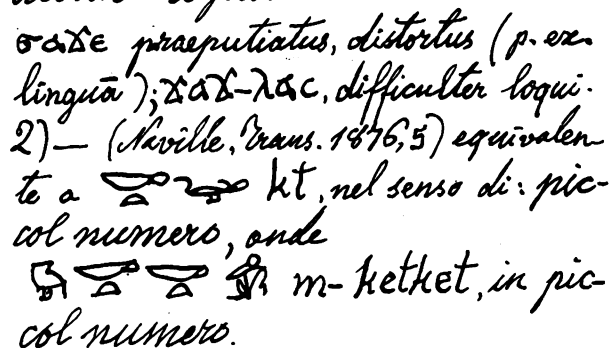 ϭⲁϫⲉ praeputiatus, distortus (p. ex.
linguā); ϫⲁϫ-ⲗⲁⲥ, difficulter loqui.
2) — (Naville, Trans. 1876,5) equivalen-
te a kt, nel senso di: pic-
col numero, onde
m-ketket, in pic-
col numero.